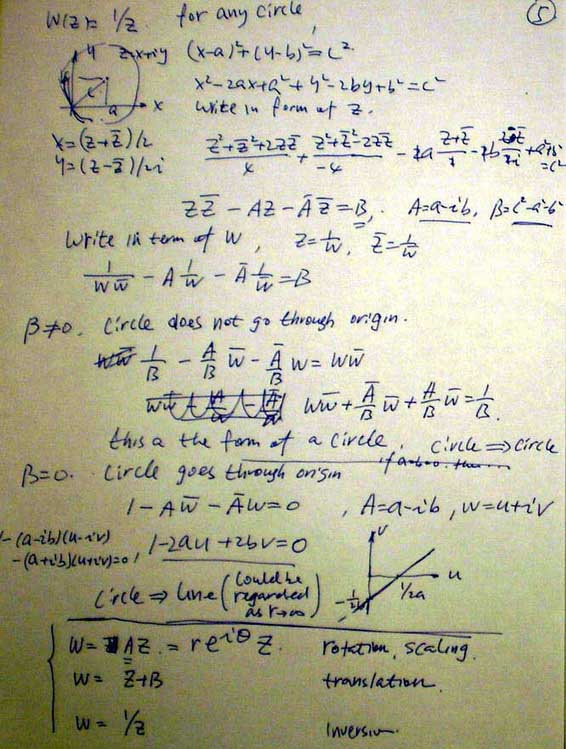 W(z) = 1/z. for any circle, 5
y z=x+iy (x-a)²+(y-b)²=c²
c x²-2ax+a²+y²-2by+b²=c²
b a x write in form of z.
x=(z+z̄)/2
y=(z-z̄)/2i (z²+z̄²+2zz̄)/4 + (z²+z̄²-2zz̄)/-4 - 2a (z+z̄)/2 - 2b (z-z̄)/2i + a²+b² = c²
zz̄ - Az - Āz̄ = B, A=a-ib, B=c²-a²-b²
Write in term of W, z=1/w, z̄=1/w̄
1/ww̄ - A 1/w - Ā 1/w̄ = B
B≠0. Circle does not go through origin.
1/B - A/B w̄ - Ā/B w = ww̄
ww̄ + Ā/B w + A/B w̄ = 1/B.
this a the form of a circle. Circle ⇒ Circle
B=0. Circle goes through origin
1 - Aw̄ - Āw = 0, A=a-ib, w=u+iv
1-(a-ib)(u-iv)
-(a+ib)(u+iv)=0, 1-2au+2bv=0 v u
Circle ⇒ Line (Could be regarded as r→∞) -1/2b 1/2a
W = AZ = re^{iθ} Z. rotation, scaling.
W = Z+B translation.
W = 1/Z Inversion.